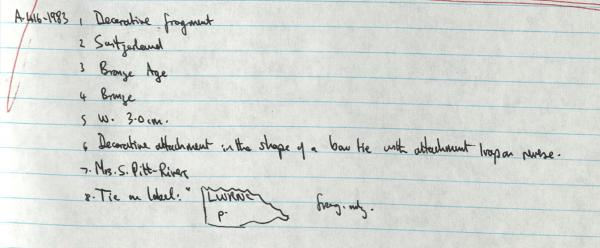 A.416-1983 1 Decorative fragment
2 Switzerland
3 Bronze Age
4 Bronze
5 W. 3.0cm.
6 Decorative attachment in the shape of a bow tie with attachment loop on reverse.
7. Mrs. S. Pitt-Rivers
8. Tie on label: " LWRNC frag. only.
P.